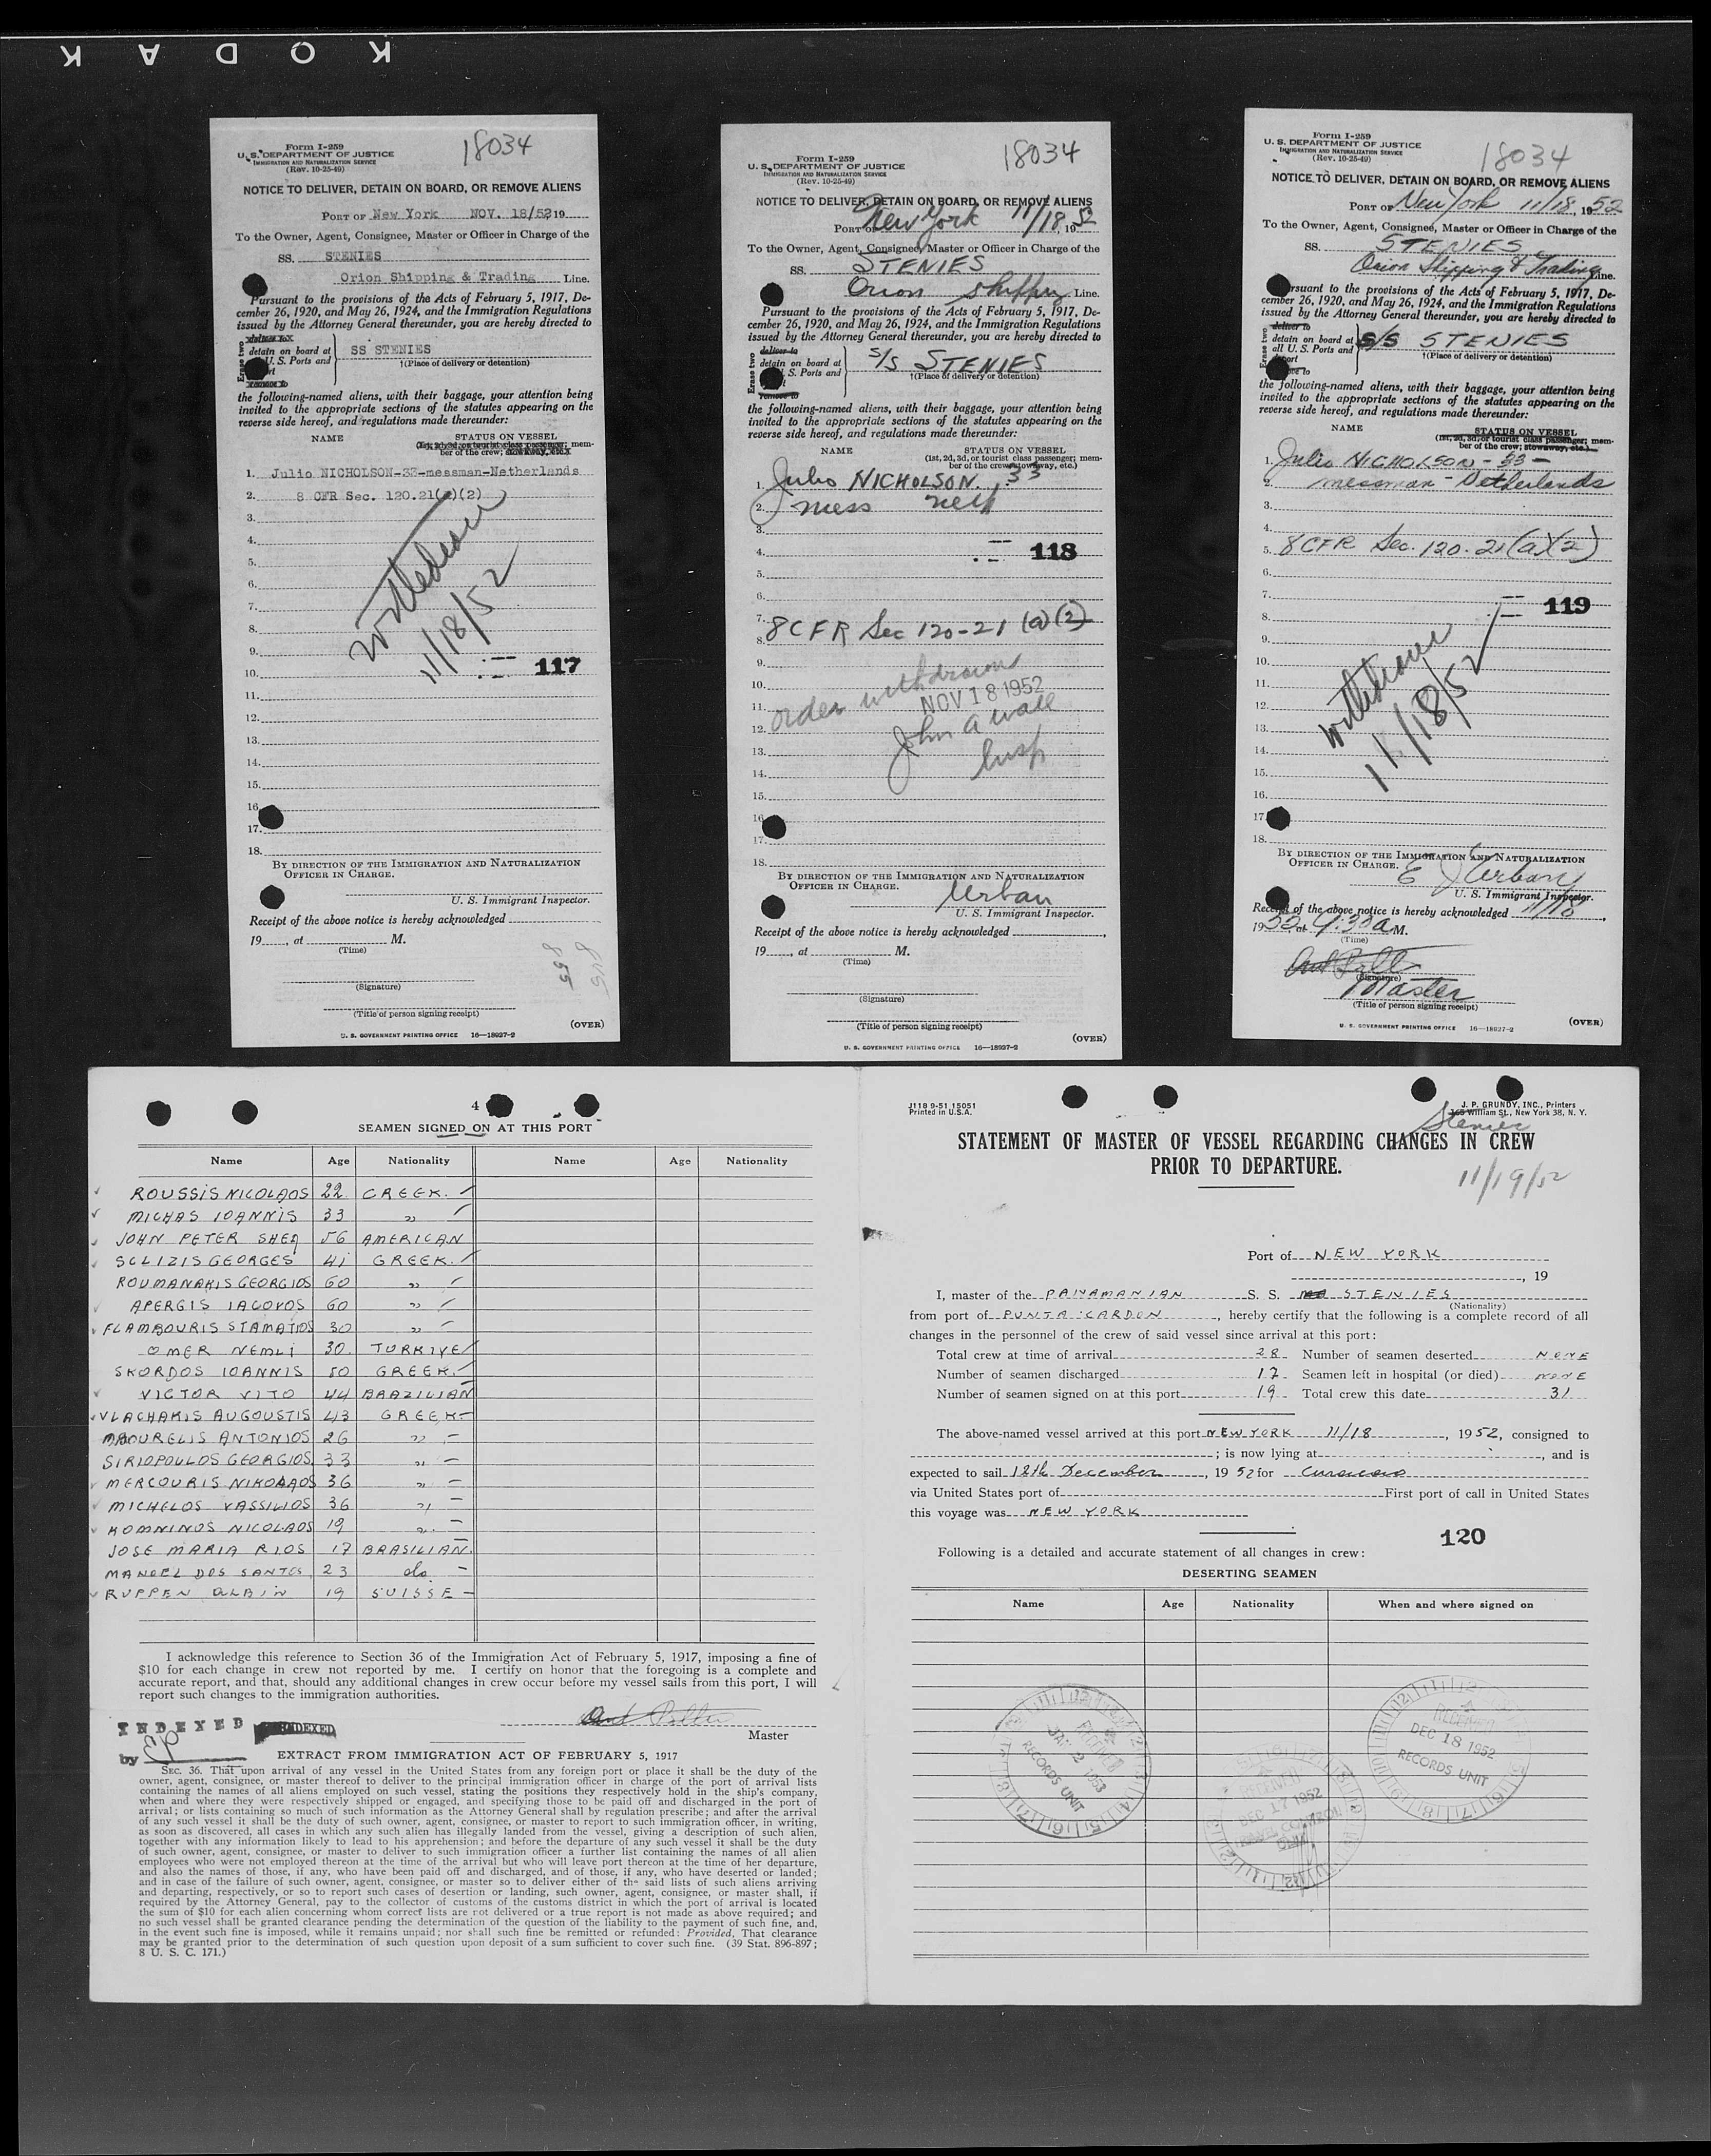 KODAK
Form I-259
U. S. DEPARTMENT OF JUSTICE
IMMIGRATION AND NATURALIZATION SERVICE
(Rev. 10-25-49)
18034
NOTICE TO DELIVER, DETAIN ON BOARD, OR REMOVE ALIENS
PORT OF New York NOV. 18/52 19
To the Owner, Agent, Consignee, Master or Officer in Charge of the
SS. STENIES
Orion Shipping & Trading Line.
Pursuant to the provisions of the Acts of February 5, 1917, De-
cember 26, 1920, and May 26, 1924, and the Immigration Regulations
issued by the Attorney General thereunder, you are hereby directed to
Erase two
detain on board at
U. S. Ports and
SS STENIES
†(Place of delivery or detention)
remove to
the following-named aliens, with their baggage, your attention being
invited to the appropriate sections of the statutes appearing on the
reverse side hereof, and regulations made thereunder:
NAME STATUS ON VESSEL
(1st, 2d, 3d, or tourist class passenger; mem-
ber of the crew; stowaway, etc.)
1. Julio NICHOLSON-33-messman-Netherlands
2. 8 CFR Sec. 120.21(a)(2)
3.
4.
5.
6.
7.
8.
9.
10.
11.
12.
13.
14.
15.
16.
17.
18.
withdrawn
11/18/52
117
BY DIRECTION OF THE IMMIGRATION AND NATURALIZATION
OFFICER IN CHARGE.
U. S. Immigrant Inspector.
Receipt of the above notice is hereby acknowledged
19, at M.
(Time)
855
(Signature)
(Title of person signing receipt)
(OVER)
U. S. GOVERNMENT PRINTING OFFICE 16—18927-2
Form I-259
U. S. DEPARTMENT OF JUSTICE
IMMIGRATION AND NATURALIZATION SERVICE
(Rev. 10-25-49)
18034
NOTICE TO DELIVER, DETAIN ON BOARD, OR REMOVE ALIENS
PORT OF New York 11/18, 1952
To the Owner, Agent, Consignee, Master or Officer in Charge of the
SS. STENIES
Orion Shipping Line.
Pursuant to the provisions of the Acts of February 5, 1917, De-
cember 26, 1920, and May 26, 1924, and the Immigration Regulations
issued by the Attorney General thereunder, you are hereby directed to
Erase two
deliver to
detain on board at
S. Ports and
remove to
S/S STENIES
†(Place of delivery or detention)
the following-named aliens, with their baggage, your attention being
invited to the appropriate sections of the statutes appearing on the
reverse side hereof, and regulations made thereunder:
NAME STATUS ON VESSEL
(1st, 2d, 3d, or tourist class passenger; mem-
ber of the crew; stowaway, etc.)
1. Julio NICHOLSON. 33
2. mess neth
3.
4. 118
5.
6.
7.
8. 8 CFR Sec 120-21 (a)(2)
9.
10.
11.
12.
13.
14.
15.
16.
17.
18.
order withdrawn
NOV 18 1952
John A Wall
Insp
BY DIRECTION OF THE IMMIGRATION AND NATURALIZATION
OFFICER IN CHARGE.
Urban
U. S. Immigrant Inspector.
Receipt of the above notice is hereby acknowledged
19, at M.
(Time)
(Signature)
(Title of person signing receipt)
(OVER)
U. S. GOVERNMENT PRINTING OFFICE 16—18927-2
Form I-259
U. S. DEPARTMENT OF JUSTICE
IMMIGRATION AND NATURALIZATION SERVICE
(Rev. 10-25-49)
18034
NOTICE TO DELIVER, DETAIN ON BOARD, OR REMOVE ALIENS
PORT OF New York 11/18, 1952
To the Owner, Agent, Consignee, Master or Officer in Charge of the
SS. STENIES
Orion Shipping & Trading Line.
Pursuant to the provisions of the Acts of February 5, 1917, De-
cember 26, 1920, and May 26, 1924, and the Immigration Regulations
issued by the Attorney General thereunder, you are hereby directed to
Erase two
deliver to
detain on board at
all U. S. Ports and
S/S STENIES
†(Place of delivery or detention)
the following-named aliens, with their baggage, your attention being
invited to the appropriate sections of the statutes appearing on the
reverse side hereof, and regulations made thereunder:
NAME STATUS ON VESSEL
(1st, 2d, 3d, or tourist class passenger; mem-
ber of the crew; stowaway, etc.)
1. Julio NICHOLSON - 33 -
2. messman - Netherlands
3.
4.
5. 8 CFR Sec. 120.21(a)(2)
6.
7.
8. 119
9.
10.
11.
12.
13.
14.
15.
16.
17.
18.
withdrawn
11/18/52
BY DIRECTION OF THE IMMIGRATION AND NATURALIZATION
OFFICER IN CHARGE.
E J Urban
U. S. Immigrant Inspector.
Receipt of the above notice is hereby acknowledged 11/18,
1952 at 9:30 a M.
(Time)
(Signature)
Master
(Title of person signing receipt)
(OVER)
U. S. GOVERNMENT PRINTING OFFICE 16—18927-2
4
SEAMEN SIGNED ON AT THIS PORT
Name Age Nationality Name Age Nationality
ROUSSIS NICOLAOS 22 GREEK.
MICHAS IOANNIS 33 "
JOHN PETER SHEA 56 AMERICAN
SCLIZIS GEORGES 41 GREEK.
ROUMANAKIS GEORGIOS 60 "
APERGIS IACOVOS 60 "
FLAMBOURIS STAMATIOS 30 "
OMER NEMLI 30. TURKIYE
SKORDOS IOANNIS 50 GREEK.
VICTOR VITO 44 BRAZILIAN
VLACHAKIS AUGOUSTIS 43 GREEK
MAOURELIS ANTONIOS 26 "
SIRIOPOULOS GEORGIOS. 33 "
MERCOURIS NIKOLAOS 36 "
MICHELOS VASSILIOS 36 "
KOMNINOS NICOLAOS 19 "
JOSE MARIA RIOS 17 BRASILIAN.
MANOEL DOS SANTOS 23 do.
RUPPEN ALAIN 19 SUISSE
I acknowledge this reference to Section 36 of the Immigration Act of February 5, 1917, imposing a fine of
$10 for each change in crew not reported by me. I certify on honor that the foregoing is a complete and
accurate report, and that, should any additional changes in crew occur before my vessel sails from this port, I will
report such changes to the immigration authorities.
INDEXED INDEXED
Master
by
EXTRACT FROM IMMIGRATION ACT OF FEBRUARY 5, 1917
SEC. 36. That upon arrival of any vessel in the United States from any foreign port or place it shall be the duty of the
owner, agent, consignee, or master thereof to deliver to the principal immigration officer in charge of the port of arrival lists
containing the names of all aliens employed on such vessel, stating the positions they respectively hold in the ship's company,
when and where they were respectively shipped or engaged, and specifying those to be paid off and discharged in the port of
arrival; or lists containing so much of such information as the Attorney General shall by regulation prescribe; and after the arrival
of any such vessel it shall be the duty of such owner, agent, consignee, or master to report to such immigration officer, in writing,
as soon as discovered, all cases in which any such alien has illegally landed from the vessel, giving a description of such alien,
together with any information likely to lead to his apprehension; and before the departure of any such vessel it shall be the duty
of such owner, agent, consignee, or master to deliver to such immigration officer a further list containing the names of all alien
employees who were not employed thereon at the time of the arrival but who will leave port thereon at the time of her departure,
and also the names of those, if any, who have been paid off and discharged, and of those, if any, who have deserted or landed;
and in case of the failure of such owner, agent, consignee, or master so to deliver either of the said lists of such aliens arriving
and departing, respectively, or so to report such cases of desertion or landing, such owner, agent, consignee, or master shall, if
required by the Attorney General, pay to the collector of customs of the customs district in which the port of arrival is located
the sum of $10 for each alien concerning whom correct lists are not delivered or a true report is not made as above required; and
no such vessel shall be granted clearance pending the determination of the question of the liability to the payment of such fine, and,
in the event such fine is imposed, while it remains unpaid; nor shall such fine be remitted or refunded: Provided, That clearance
may be granted prior to the determination of such question upon deposit of a sum sufficient to cover such fine. (39 Stat. 896-897;
8 U. S. C. 171.)
J118 9-51 15051
Printed in U.S.A.
J. P. GRUNDY, INC., Printers
165 William St., New York 38, N. Y.
Stenies
STATEMENT OF MASTER OF VESSEL REGARDING CHANGES IN CREW
PRIOR TO DEPARTURE.
11/19/52
Port of NEW YORK
, 19
I, master of the PANAMANIAN S. S. STENIES
(Nationality)
from port of PUNTA CARDON, hereby certify that the following is a complete record of all
changes in the personnel of the crew of said vessel since arrival at this port:
Total crew at time of arrival 28 Number of seamen deserted NONE
Number of seamen discharged 17 Seamen left in hospital (or died) NONE
Number of seamen signed on at this port 19 Total crew this date 31
The above-named vessel arrived at this port NEW YORK 11/18, 1952, consigned to
; is now lying at, and is
expected to sail 18th December, 1952 for Curacao
via United States port of First port of call in United States
this voyage was NEW YORK
120
Following is a detailed and accurate statement of all changes in crew:
DESERTING SEAMEN
Name Age Nationality When and where signed on
RECEIVED
JAN 2 1953
RECORDS UNIT
RECEIVED
DEC 17 1952
RECEIVED
DEC 18 1952
RECORDS UNIT